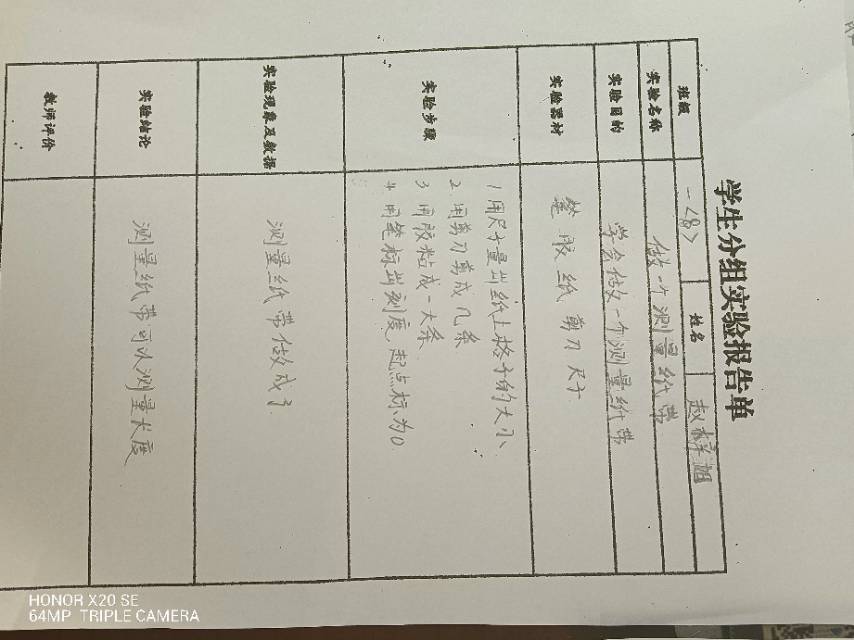 学生分组实验报告单
班级 一<8> 姓名 赵梓旭
实验名称 做一个测量纸带
实验目的 学会做一个测量纸带
实验器材 笔 胶 纸 剪刀 尺子
实验步骤
1 用尺子量出纸上格子的大小、
2 用剪刀剪成几条
3 用胶粘成一大条
4 用笔标出刻度,起点标为0
实验现象及数据 测量纸带做成了
实验结论 测量纸带可以测量长度
教师评价
HONOR X20 SE
64MP TRIPLE CAMERA